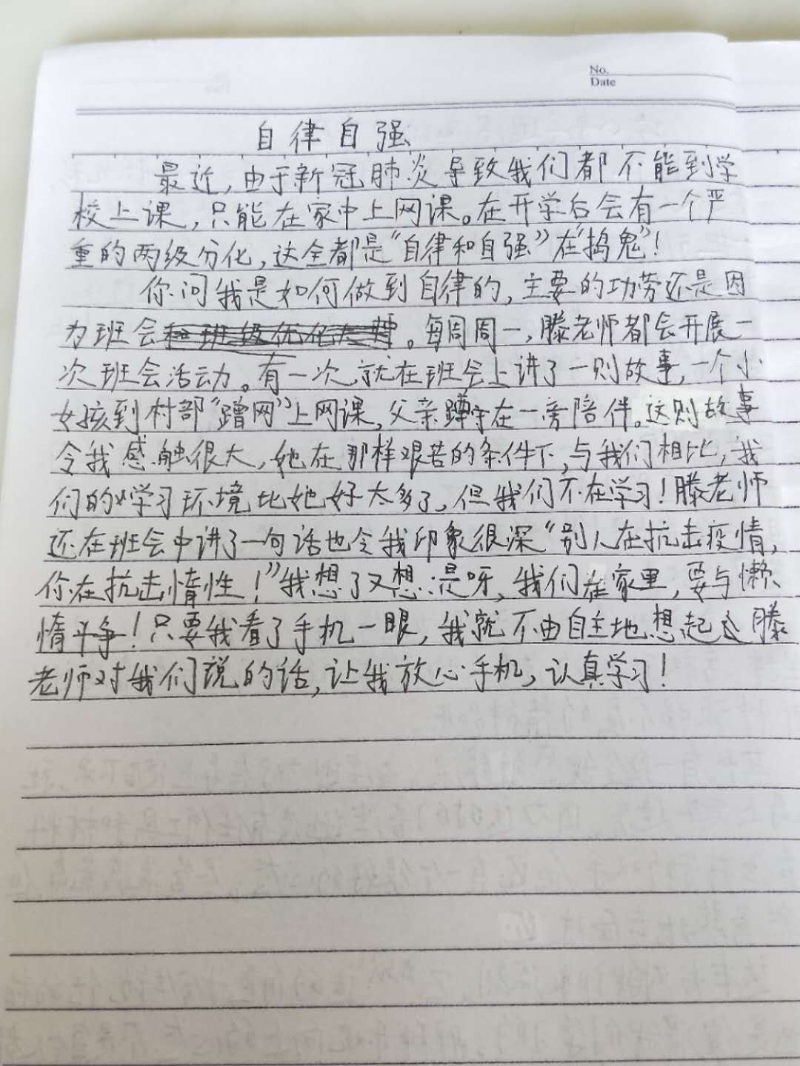 No.
Date
自律自强
最近,由于新冠肺炎导致我们都不能到学
校上课,只能在家中上网课。在开学后会有一个严
重的两级分化,这全都是“自律和自强”在“捣鬼”!
你问我是如何做到自律的,主要的功劳还是因
为班会。每周周一,滕老师都会开展一
次班会活动。有一次就在班会上讲了一则故事,一个小
女孩到村部“蹭网”上网课,父亲蹲守在一旁陪伴。这则故事
令我感触很大,她在那样艰苦的条件下,与我们相比,我
们的学习环境比她好太多了,但我们不在学习!滕老师
还在班会中讲了一句话也令我印象很深“别人在抗击疫情,
你在抗击惰性!”我想了又想:是呀,我们在家里,要与懒
惰斗争!只要我看了手机一眼,我就不由自主地想起滕
老师对我们说的话,让我放心手机,认真学习!